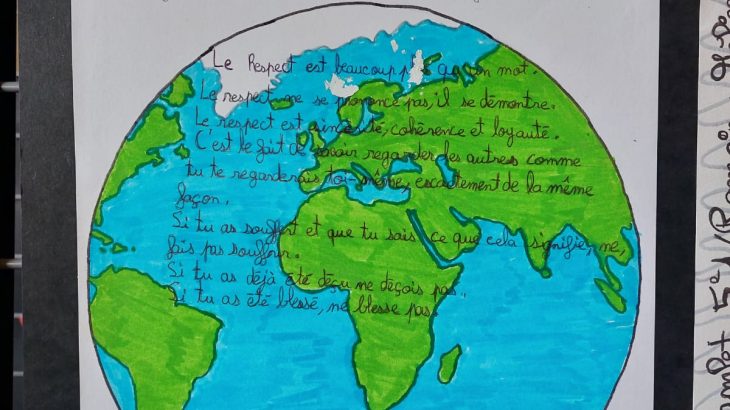 Le Respect est beaucoup plus qu'un mot.
Le respect ne se prononce pas, il se démontre.
Le respect est sincérité, cohérence et loyauté.
C'est le fait de savoir regarder les autres comme
tu te regarderais toi-même, escactement de la même
façon.
Si tu as souffert et que tu sais ce que cela signifie, ne,
fais pas souffrir.
Si tu as déjà été déçu ne déçois pas.
Si tu as été blessé, ne blesse pas.